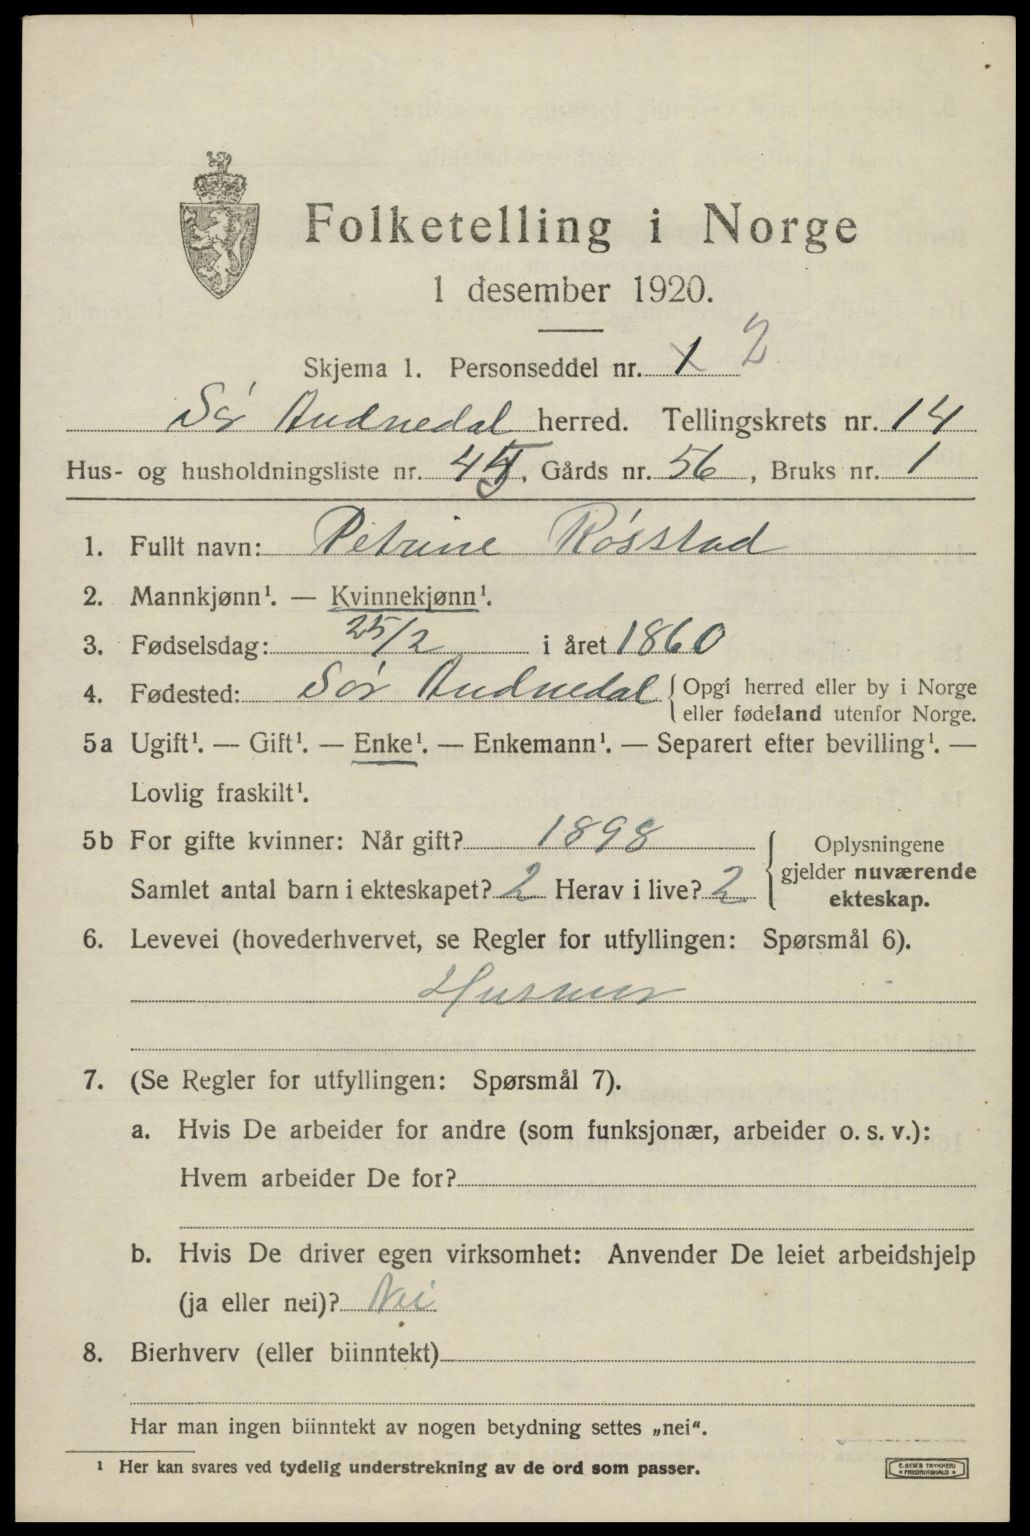 Folketelling i Norge
1 desember 1920.
Skjema 1. Personseddel nr. 1 2
Sør Audnedal herred. Tellingskrets nr. 14
Hus- og husholdningsliste nr. 45, Gårds nr. 56, Bruks nr. 1
1. Fullt navn: Petrine Røsstad
2. Mannkjønn¹. — Kvinnekjønn¹.
3. Fødselsdag: 25/2 i året 1860
4. Fødested: Sør Audnedal { Opgi herred eller by i Norge
eller fødeland utenfor Norge.
5a Ugift¹. — Gift¹. — Enke¹. — Enkemann¹. — Separert efter bevilling¹. —
Lovlig fraskilt¹.
5b For gifte kvinner: Når gift? 1898
Samlet antal barn i ekteskapet? 2 Herav i live? 2
Oplysningene
gjelder nuværende
ekteskap.
6. Levevei (hovederhvervet, se Regler for utfyllingen: Spørsmål 6).
Husmor
7. (Se Regler for utfyllingen: Spørsmål 7).
a. Hvis De arbeider for andre (som funksjonær, arbeider o. s. v.):
Hvem arbeider De for?
b. Hvis De driver egen virksomhet: Anvender De leiet arbeidshjelp
(ja eller nei)? Nei
8. Bierhverv (eller biinntekt)
Har man ingen biinntekt av nogen betydning settes „nei“.
¹ Her kan svares ved tydelig understrekning av de ord som passer.
E. SEM'S TRYKKERI
• FREDRIKSHALD •